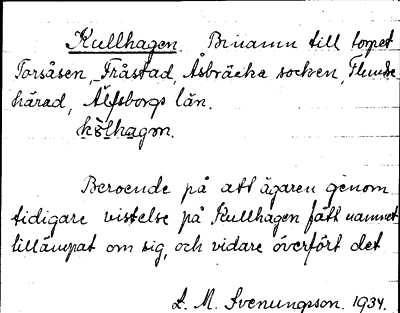 Kullhagen. Binamn till torpet
Torsåsen, Fråstad, Åsbräcka socken, Flundre
härad, Älfsborgs län.
kölhagɷn.
Beroende på att ägaren genom
tidigare vistelse på Kullhagen fått namnet
tillämpat om sig, och vidare överfört det
L. M. Svenungsson. 1934.